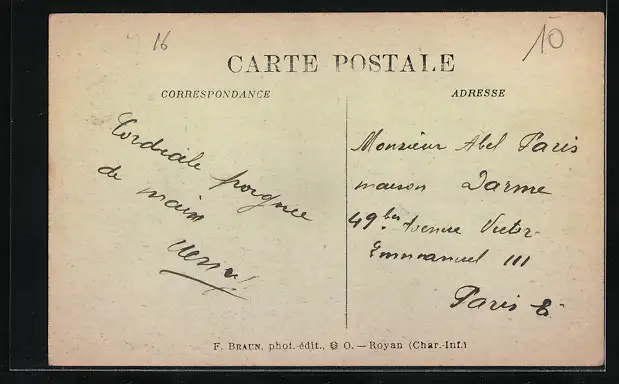 16
10
CARTE POSTALE
CORRESPONDANCE
ADRESSE
Cordiale poignée
de main
Monsieur Abel Paris
maison Darme
49 bis Avenue Victor-
Emmanuel III
Paris 8
F. BRAUN, phot.-édit., O. — Royan (Char.-Inf.)